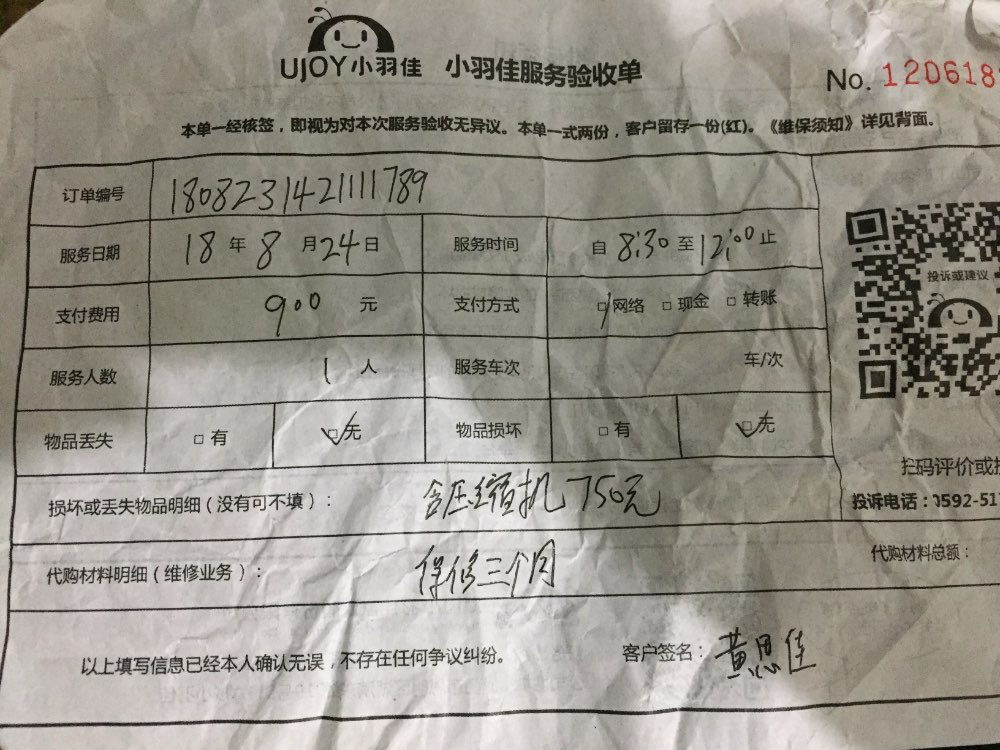 UJOY小羽佳 小羽佳服务验收单 No. 120618
本单一经核签，即视为对本次服务验收无异议。本单一式两份，客户留存一份(红)。《维保须知》详见背面。
订单编号 1808231421111789
服务日期 18 年 8 月 24 日 服务时间 自 8:30 至 12:00 止
投诉或建议
支付费用 900 元 支付方式 □网络 □现金 □转账
服务人数 1 人 服务车次 车/次
物品丢失 □有 □无 物品损坏 □有 □无
扫码评价或
损坏或丢失物品明细（没有可不填）： 含压缩机750元
投诉电话：0592-51
代购材料明细（维修业务）： 保修三个月 代购材料总额：
以上填写信息已经本人确认无误，不存在任何争议纠纷。 客户签名：黄思佳